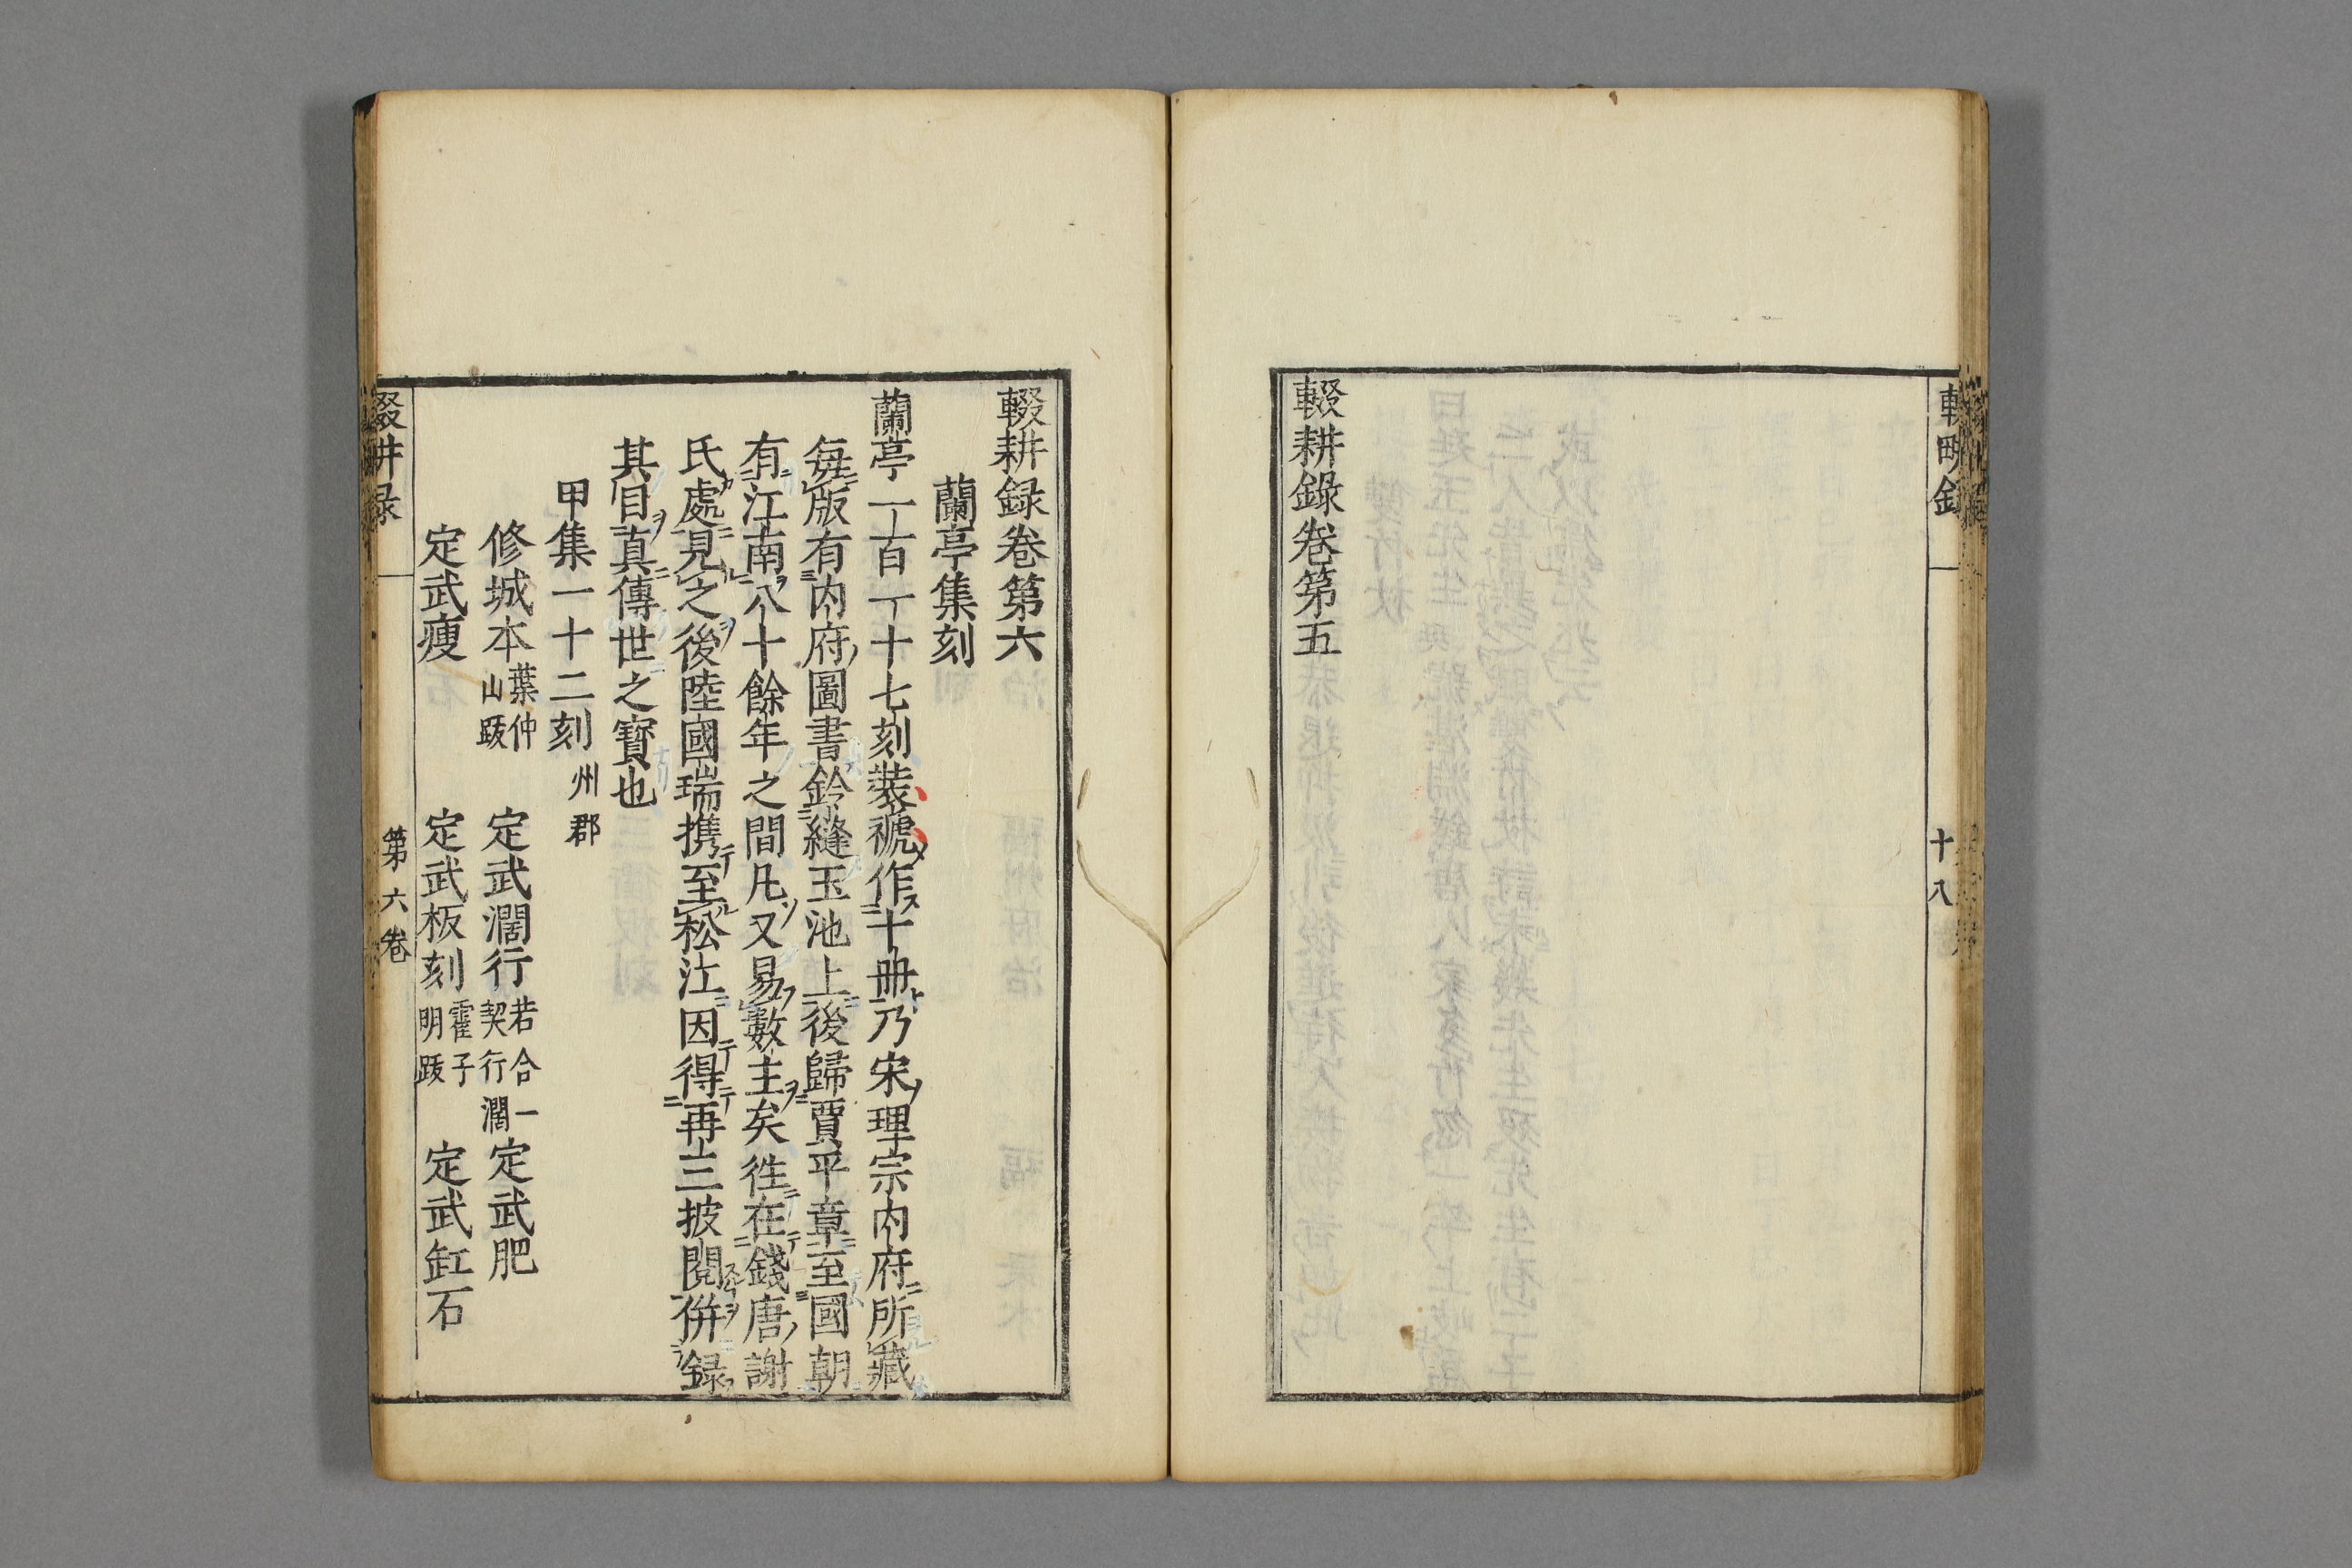 輟耕錄卷第五
十八
輟耕録卷第六
蘭亭集刻
蘭亭一百一十七刻裝褫作十冊乃宋理宗内府所藏
每版有内府圖書鈐縫玉池上後歸賈平章至國朝
有江南八十餘年之間凡又易數主矣往在錢唐謝
氏處見之後陸國瑞携至松江因得再三披閱併録
其目真傳世之寶也
甲集一十二刻 州郡
修城本 葉仲山跋 定武濶行 若合一契行濶 定武肥
定武瘦 定武板刻 霍子明跋 定武缸石
輟耕録 第六卷